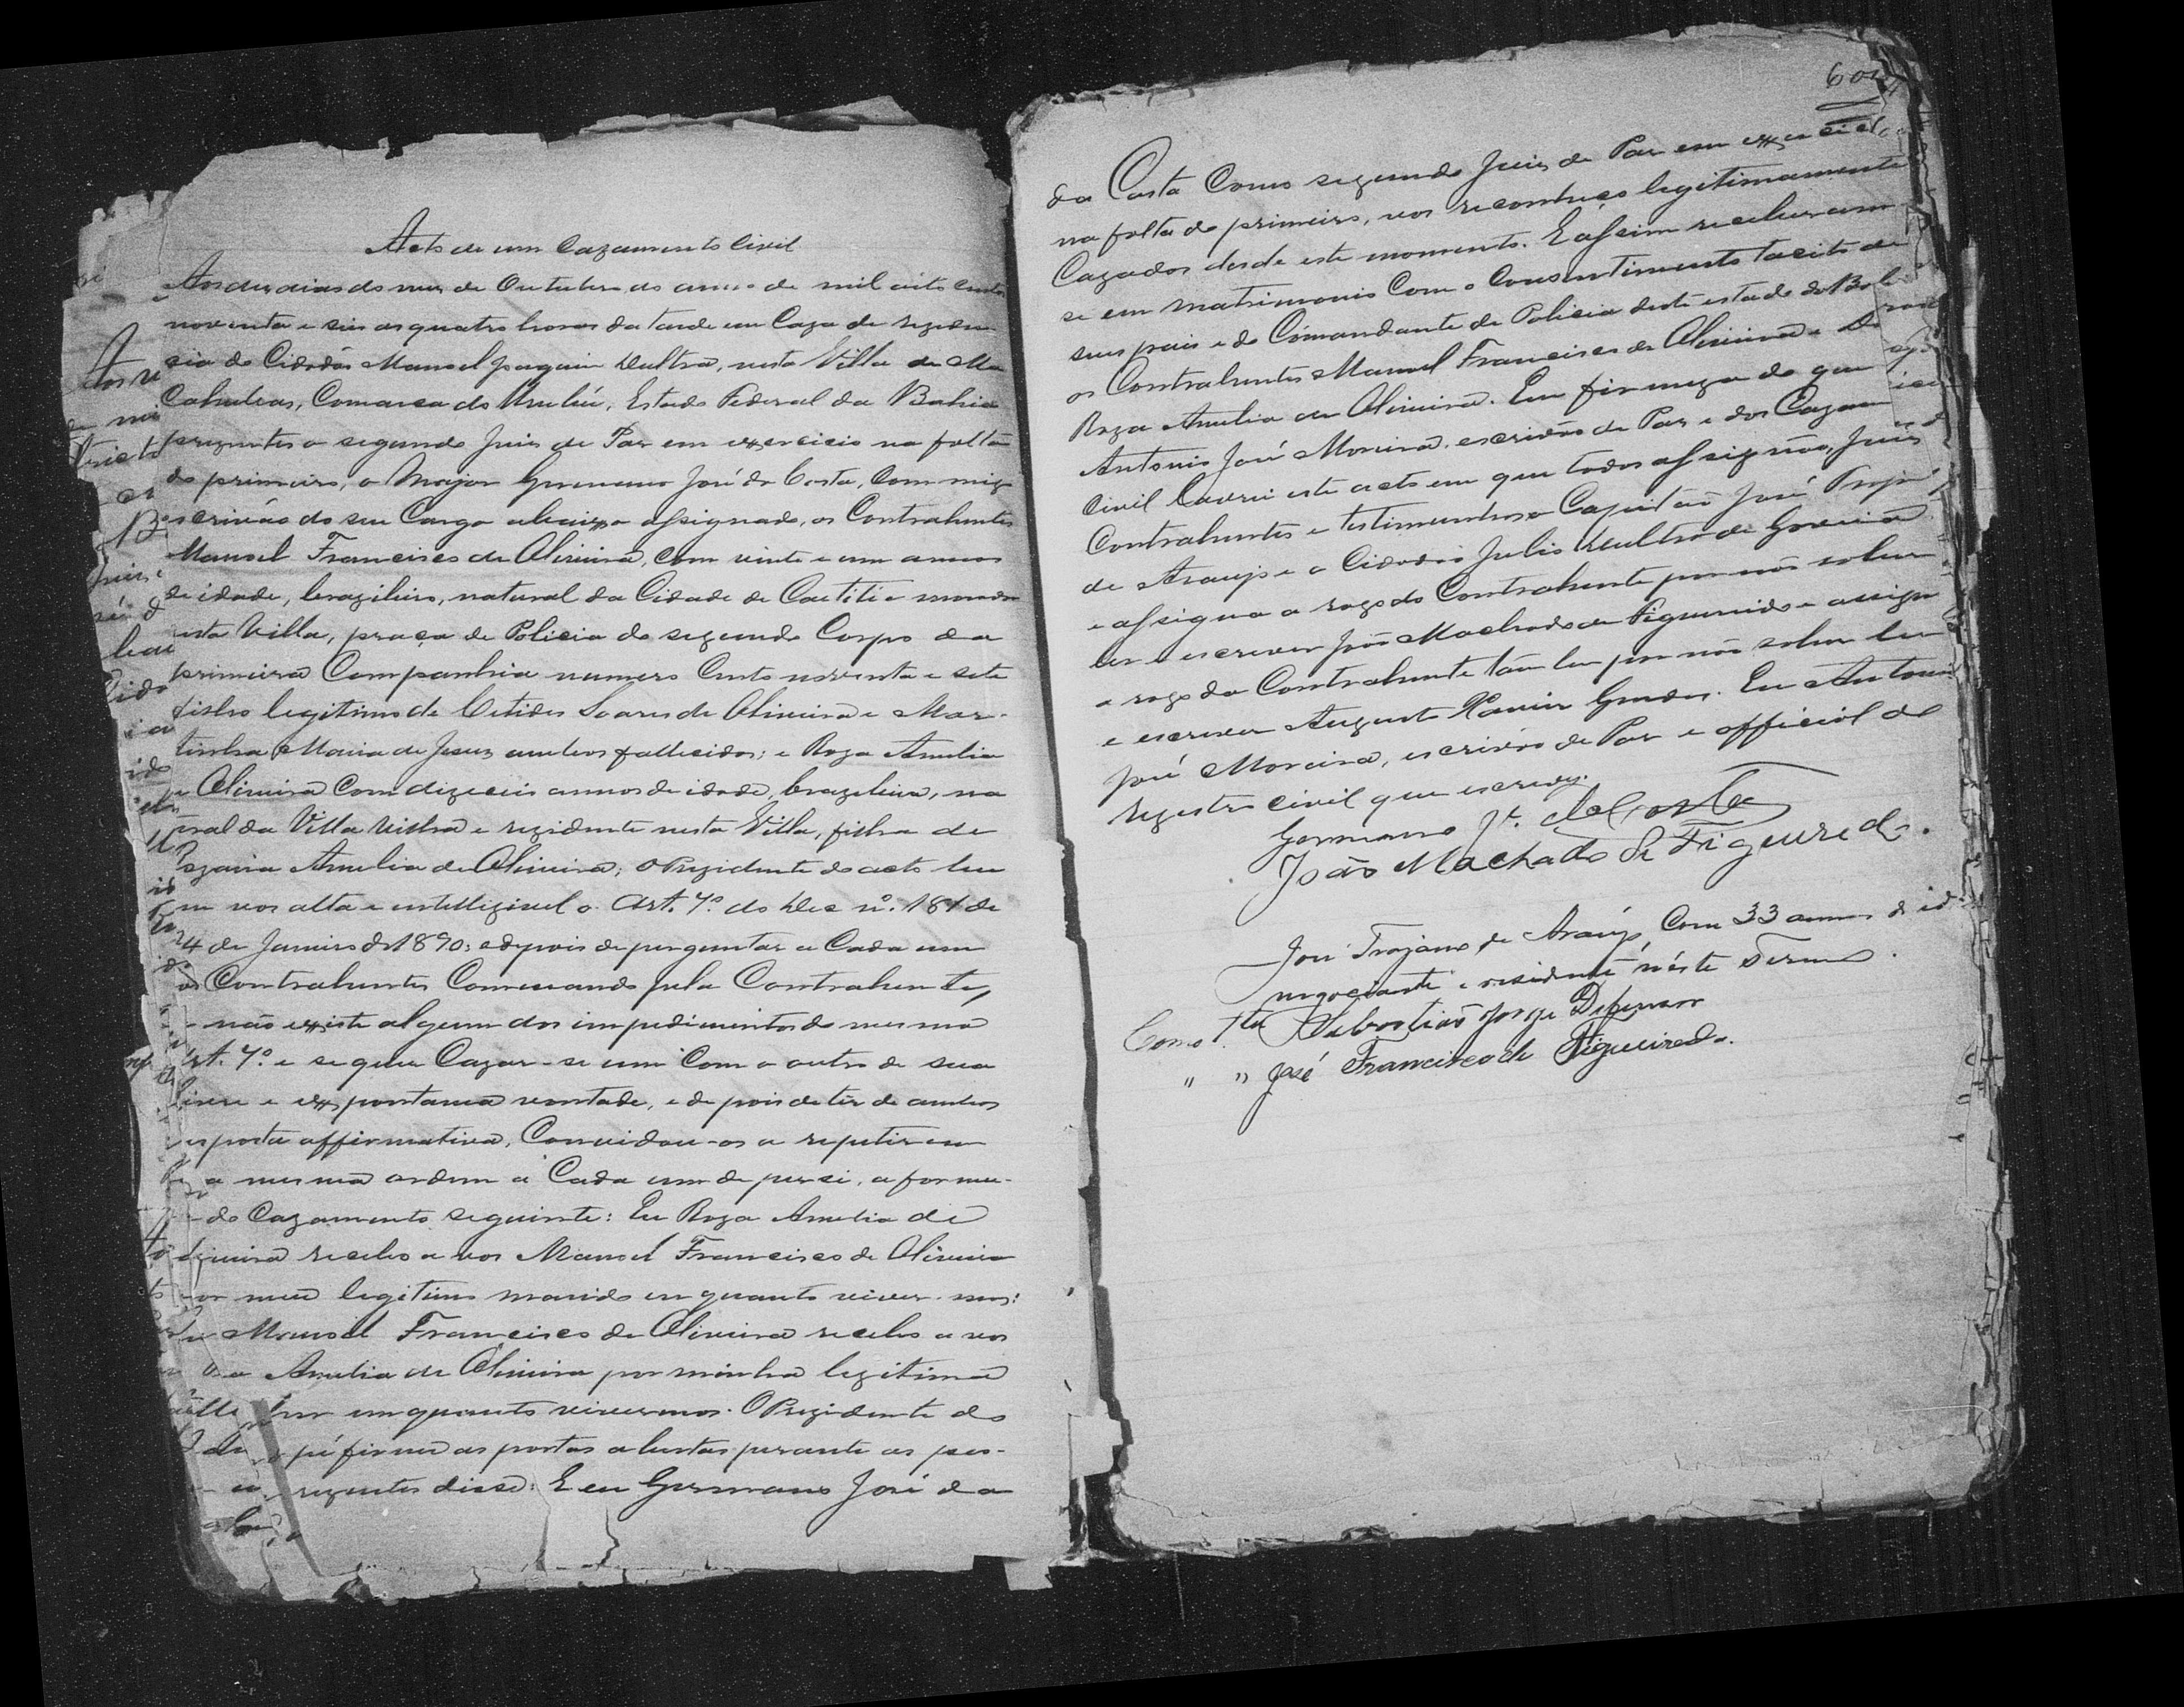 Acto de um Cazamento Civil
Aos des dias do mes de Outubro do anno de mil oito centos
noventa e seis as quatro horas da tarde em Caza de reziden
cia do Cidadão Manoel Joaquim Dultra, nesta Villa de Ma
cahubas, Comarca do Urubú, Estado Federal da Bahia
prezentes o segundo Juis de Pas em exercicio na falta
do primeiro, o Major Germano José da Costa, commigo
escrivão do seu Cargo abaixo assignado, os Contrahentes
Manoel Francisco de Oliveira, com vinte e um annos
de idade, brazileiro, natural da Cidade de Caetité e morador
nesta Villa, praça de Policia do segundo Corpo da
primeira Companhia numero Cento noventa e sete
filho legitimo de Soares de Oliveira e Mar-
tinha Maria de Jesus, ambos fallecidos; e Roza Amelia
de Oliveira com dizeceis annos de idade, brazileira, na
tural da Villa Velha e rezidente nesta Villa, filha de
Amelia de Oliveira; o Prezidente do acto leu
em vos alta e intelligivel o Art. 7º do Dec nº. 181 de
24 de Janeiro de 1890; e depois de perguntar a Cada um
dos Contrahentes Comessando pela Contrahente,
se não existe algum dos impedimentos do mesmo
Art. 7º e se quer Cazar-se um Com o outro de sua
livre e expontanea vontade, e depois de ter de ambos
resposta affirmativa, Convidou-os a repetirem
na mesma ordem a Cada um de per si, a formu-
la do Cazamento seguinte: Eu Roza Amelia de
Oliveira recebo a vos Manoel Francisco de Oliveira
por meu legitimo marido enquanto viver-mos:
Eu Manoel Francisco de Oliveira recebo a vos
Roza Amelia de Oliveira por minha legitima
mulher emquanto vivermos. O Prezidente do
acto de pé firme as portas abertas perante as pes-
soas prezentes disse: E eu Germano José da
604
da Costa Como segundo Juis de Pas em exercicio
na falta do primeiro, vos reconheço legitimamente
Cazados desde este momento. E assim receberam
se em matrimonio Com o Consentimento tacito de
seus pais e do Cómandante de Policia deste estado da Bahia
os Contrahentes Manoel Francisco de Oliveira e Dona
Roza Amelia de Oliveira. Em firmeza do que eu
Antonio José Moreira, escrivão de Pas e dos Cazam
civil lavrei este acto em que todos assignão, Juis
Contrahentes e testimunhas o Capitão José Trajano
de Araujo e o Cidadão Julio Dultra de Gouveia
e assigna a rogo do Contrahente por não saber
ler e escrever João Machado de Figueirido e assigna
a rogo da Contrahente tambem por não saber ler
e escrever Augusto Xavier Guedes. Eu Antonio
José Moreira, escrivão de Pas e official do
registro civil que escrevy.
Germano Jé. da Costa
João Machado de Figueiredo.
José Trajano de Araujo, Com 33 annos de id
negociante e residente néste Termo.
Como Tta Sebastião Jorge Defensor
" " José Francisco de Figueiredo.